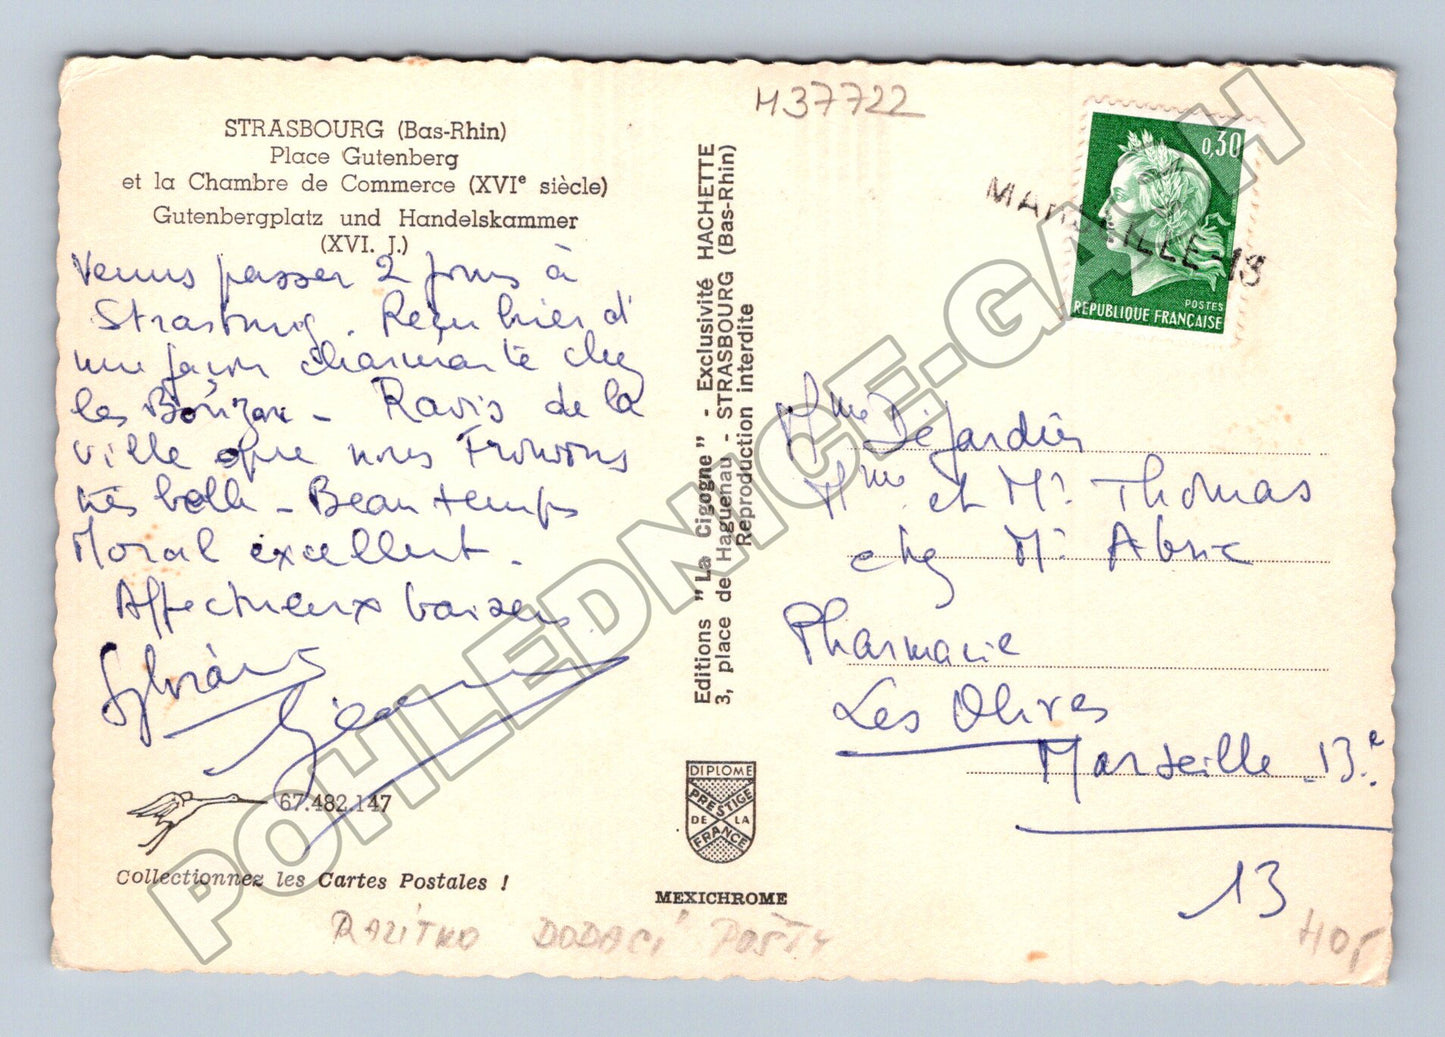 H37722
STRASBOURG (Bas-Rhin)
Place Gutenberg
et la Chambre de Commerce (XVIe siècle)
Gutenbergplatz und Handelskammer
(XVI. J.)
Venus passer 2 jours à
Strasbourg. Reçu hier d'
une façon charmante chez
les - Ravis de la
ville que nous trouvons
très belle - Beau temps
Moral excellent.
Affectueux baisers
Sylviane
67.482.147
Collectionnez les Cartes Postales !
Editions "La Cigogne" - Exclusivité HACHETTE
3, place de Haguenau - STRASBOURG (Bas-Rhin)
Reproduction interdite
DIPLOME
PRESTIGE
DE LA
FRANCE
MEXICHROME
0,30
POSTES
REPUBLIQUE FRANÇAISE
MARSEILLE-13
Mme Dejardin
Mme et Mr Thomas
chez Mr
Pharmacie
Les Olives
Marseille 13e
13
RAZÍTKO DODACÍ POŠTY
POHLEDNICE-GASH